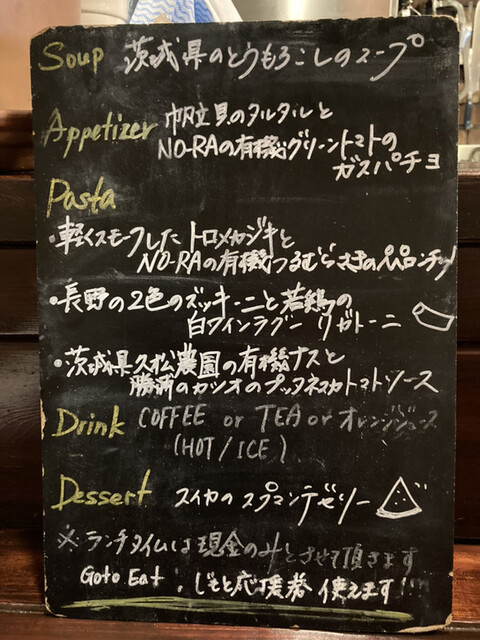 Soup 茨城県のとうもろこしのスープ
Appetizer 帆立貝のタルタルと
NO-RAの有機グリーントマトの
ガスパチョ
Pasta
・軽くスモークした トロメカジキと
NO-RAの有機つるむらさきのペペロンチーノ
・長野の2色のズッキーニと若鶏の
白ワインラグー リガトーニ
・茨城県久松農園の有機ナスと
勝浦のカツオのプッタネスカトマトソース
Drink COFFEE or TEA or オレンジジュース
(HOT/ICE)
Dessert スイカのスプマンテゼリー
※ランチタイムは現金のみとさせて頂きます
Goto Eat じもと応援券 使えます!!!